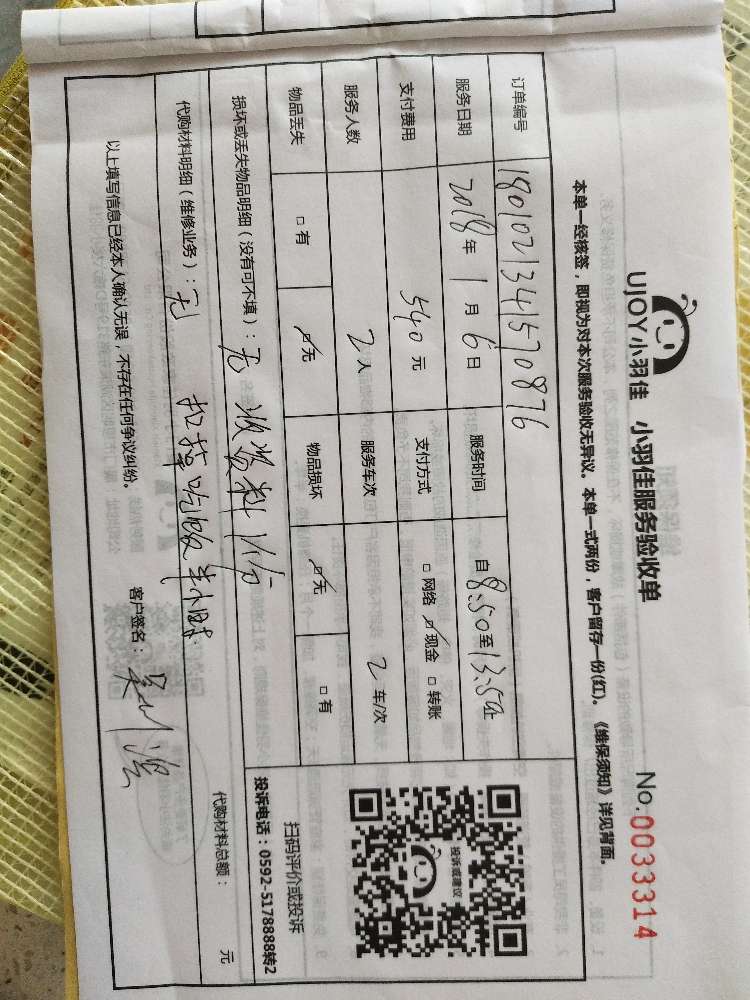 UJOY小羽佳 小羽佳服务验收单 No.0033314
本单一经核签，即视为对本次服务验收无异议。本单一式两份，客户留存一份(红)。《维保须知》详见背面。
订单编号 1801021341570876
服务日期 2018年1月6日 服务时间 自8:50至13:50止
支付费用 540元 支付方式 □网络 ☑现金 □转账
服务人数 2人 服务车次 2车/次
物品丢失 □有 ☑无 物品损坏 ☑无 □有
投诉或建议
扫码评价或投诉
投诉电话：0592-5178888转2
损坏或丢失物品明细（没有可不填）：无 资料1份
代购材料明细（维修业务）：无 扣搞吃饭半小时. 代购材料总额： 元
以上填写信息已经本人确认无误，不存在任何争议纠纷。 客户签名：